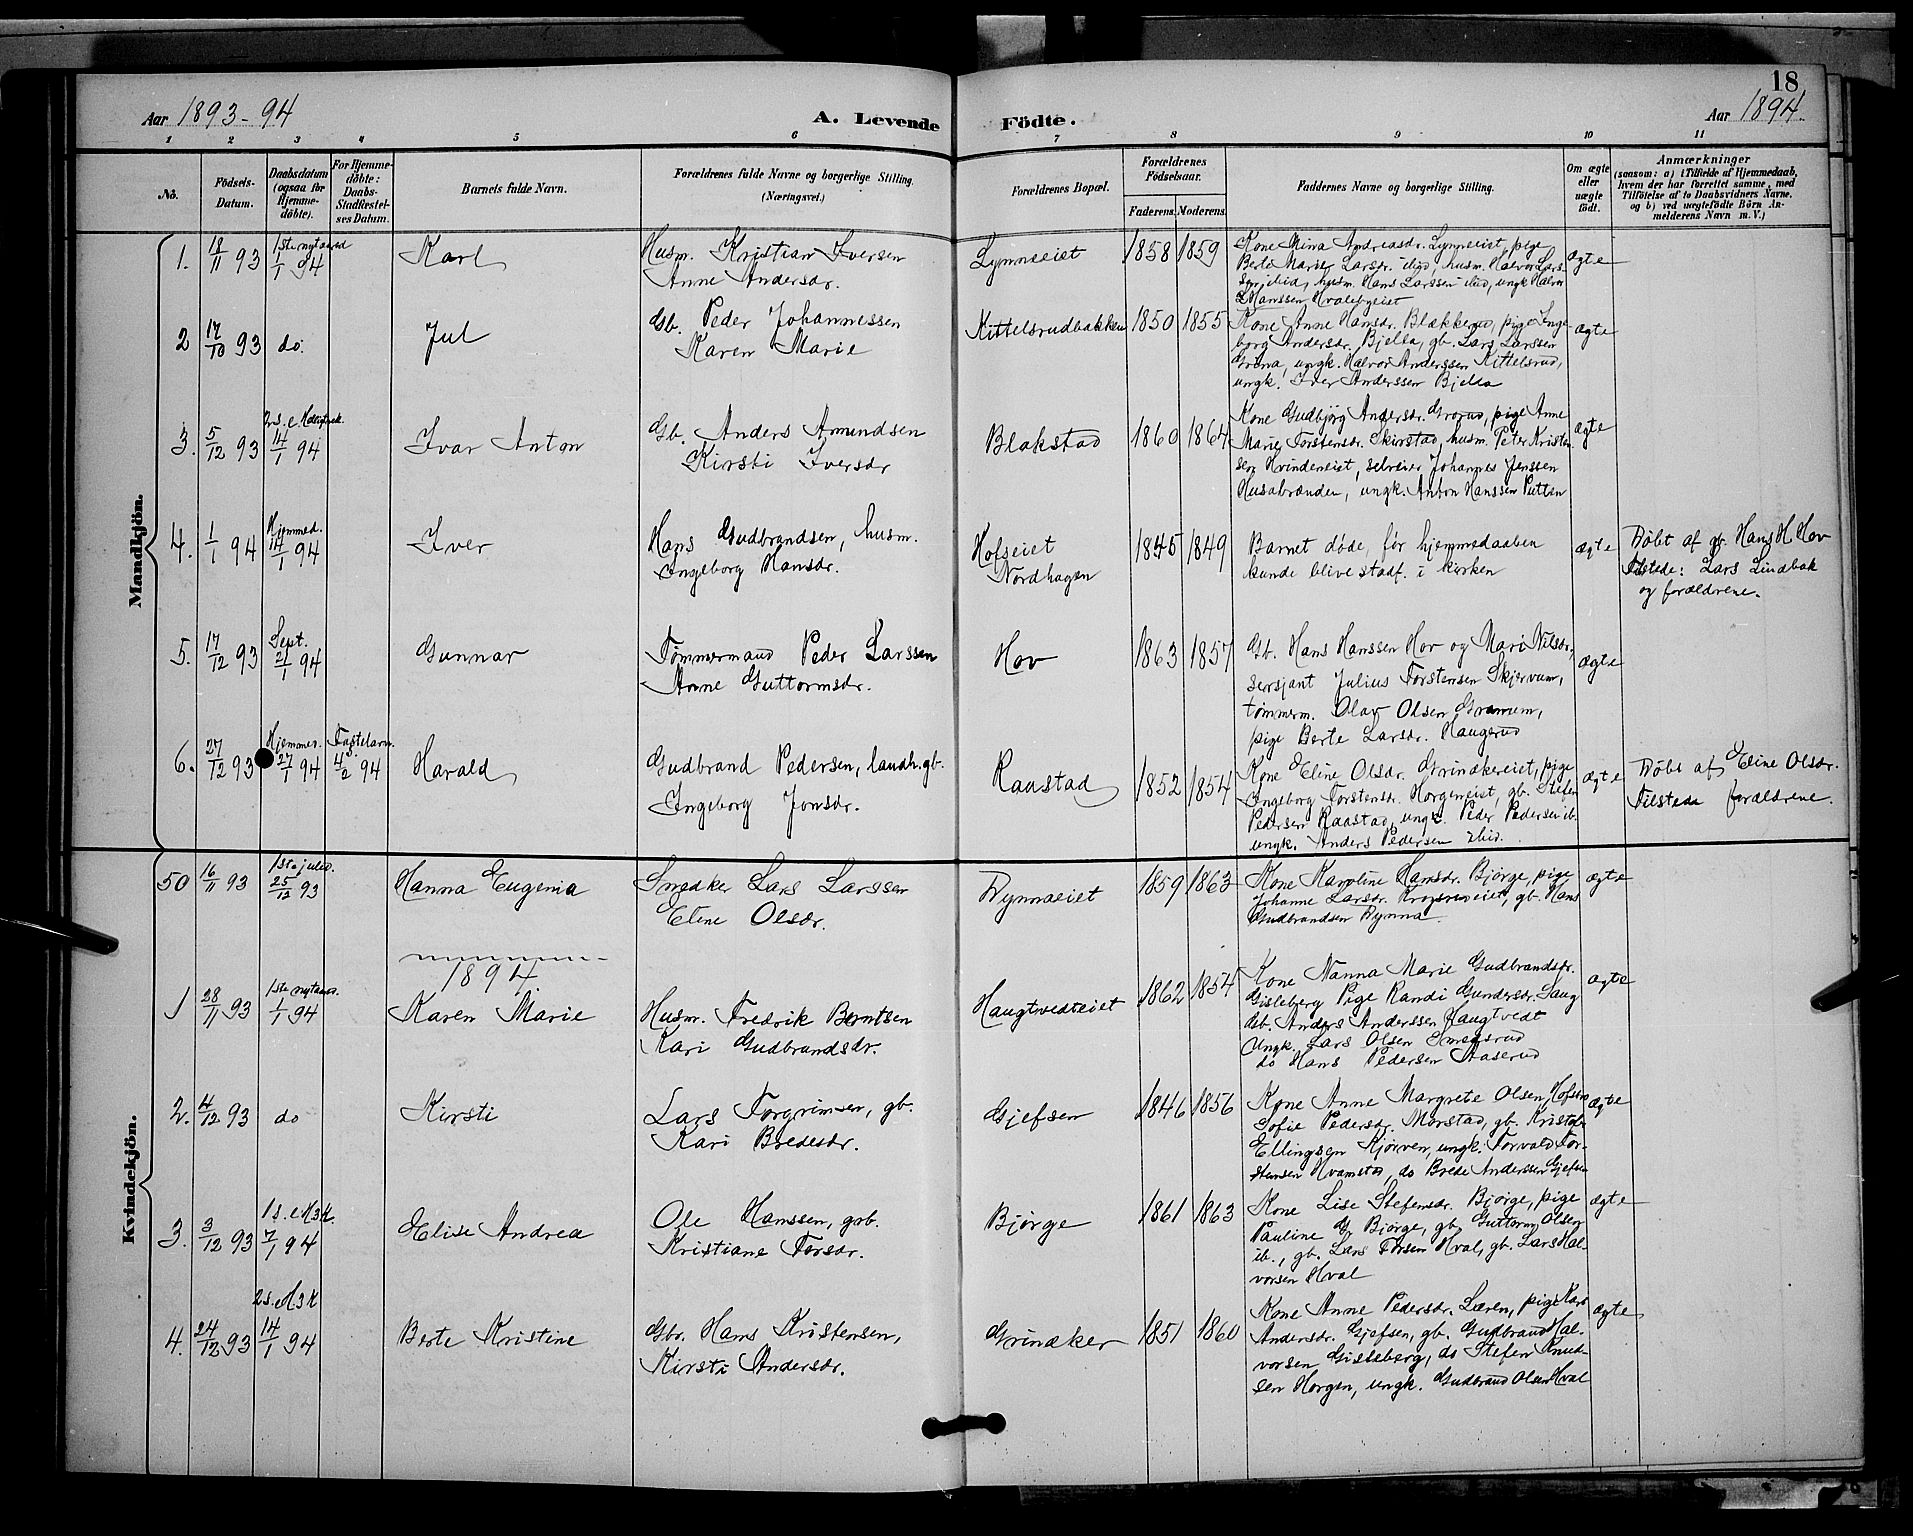 18
Aar 1893-94 A. Levende Födte. Aar 1894.
1 2 3 4 5 6 7 8 9 10 11
No.
Födsels-Datum.
Daabsdatum (ogsaa for Hjemmedöbte).
For Hjemmedöbte: Daabs-Stadfæstelses Datum.
Barnets fulde Navn.
Forældrenes fulde Navne og borgerlige Stilling.
(Næringsvei.)
Forældrenes Bopæl.
Forældrenes Födselsaar.
Faderens. Moderens.
Faddernes Navne og borgerlige Stilling.
Om ægte eller uægte født.
Anmærkninger
(saasom: a) i Tilfælde af Hjemmedaab,
hvem der har forrettet samme, med
Tilföielse af to Daabsvidners Navne.
og b) ved uægtefödte Börn Anmelderens Navn m. V.)
Mandkjön.
1. 18/11 93 1ste nytaarsd 1/1 94 Karl
Husm. Kristian Iversen
Anne Andersdr.
Lynneeiet 1858 1859
Kone Mina Andreasdr. Lynneeiet, pige
Berte Marie Larsdr. ibid, husm. Halvor Lars-
sen ibid, husm. Hans Larssen ibid, ungk Halvor
Hanssen Hvalebyeiet
ægte
2 17/10 93 do. Jul
Gb. Peder Johannessen
Karen Marie
Kittelsrudbakken 1850 1855
Kone Anne Hansdr. Blækkerud, pige Inge-
borg Andersdr. Bjella, gb. Lars Larssen
Grina, ungk. Halvor Anderssen Kittelsrud,
ungk. Iver Anderssen Bjella
ægte
3. 5/12 93 14/1 94 Ivar Anton
Gb. Anders Amundsen
Kirsti Iversdr
Blakstad 1860 1864
Kone Gudbjörg Andersdr. Grorud, pige Anne
Marie Torstensdr. Skirstad, husm. Peter Kristen
sen Hvindeneiet, selveier Johannes Jenssen
Husabrænden, ungk. Anton Hanssen Putten
ægte
4. 1/1 94 Hjemmed. 14/1 94 Iver
Hans Gudbrandsen, husm.
Ingeborg Hansdr.
Hofseiet
Nordhagen
1845 1849
Barnet døde, før hjemmedaaben
kunde blive stadf. i kirken
ægte
Døbt af gb. Hans H Hov
Tilstede: Lars Lindbak
og forældrene.
5. 17/12 93 Sept. 21/1 94 Gunnar
Tømmermand Peder Larssen
Anne Guttormsdr.
Hov 1863 1857
Gb. Hans Hanssen Hov og Mari Nilsdr,
sersjant Julius Torstensen Skjervum,
tømmerm. Olav Olsen Granum,
pige Berte Larsdr. Haugerud
ægte
6. 27/12 93 Hjemmed. 27/1 94 Fastelavn. 4/2 94 Harald
Gudbrand Pedersen, landh. gb.
Ingeborg Jonsdr.
Raastad 1852 1854
Kone Eline Olsdr. Grinakereiet, pige
Ingeborg Torstensdr. Horgeneiet, gb. Stefen
Pedersen Raastad, ungk. Peder Pedersen ib.
ungk. Anders Pedersen ibid.
ægte
Døbt af Eline Olsdr.
Tilstede forældrene.
Kvindekjön.
50 16/11 93 1ste juled. 25/12 93 Hanna Eugenia
Snedker Lars Larssen
Eline Olsdr.
Dynnaeiet 1859 1863
Kone Karoline Hansdr. Bjørge, pige
Johanne Larsdr. gb. Hans
Gudbrandsen Dynna
ægte
1894.
1 28/11 93 1ste nytaarsd. 1/1 94 Karen Marie
Husm. Fredrik Berntsen
Kari Gudbrandsdr.
Haugtvedteiet 1862 1854
Kone Nanna Marie Gudbrandsdr.
Gisleberg Pige Randi Gundersdr. Haug
Gb. Anders Anderssen Haugtvedt
Ungk. Lars Olsen
do Hans Pedersen Aaserud
ægte
2. 4/12 93 do Kirsti
Lars Torgrimsen, gb.
Kari Bredesdr.
Gjefsen 1846 1856
Kone Anne Margrete Olsen, Hofsei
Sofie Pedersdr. Morstad, gb. Kristofer
Ellingsen Kjørven, ungk. Torvald Tor-
stensen Hvamstad, do Brede Anderssen Gjefsen
ægte
3. 3/12 93 1 s. e H3K. 7/1 94 Elise Andrea
Ole Hanssen, gb.
Kristiane Torsdr.
Bjørge 1861 1863
Kone Lise Stefensdr. Bjørge, pige
Pauline G Bjørge, gb. Guttorm Olsen
ib., gb. Lars Torsen Hval, gb. Lars Hal-
vorsen Hval
ægte
4. 24/12 93 2 s. e H3K 14/1 94 Berte Kristine
Gbr. Hans Kristensen,
Kirsti Andersdr.
Grinaker 1851 1860
Kone Anne Pedersdr. Læren, pige Kari
Andersdr. Gjefsen, gb. Gudbrand Hal-
vorsen Gisleberg, do Stefen Knud-
sen Horgen, ungk. Gudbrand Olsen Hval
ægte